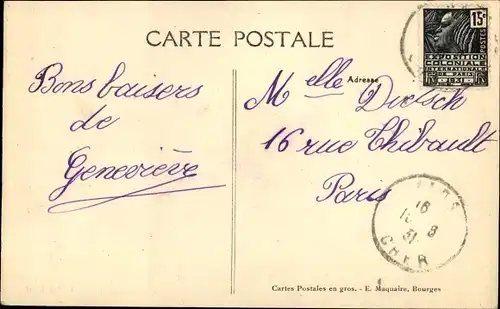 CARTE POSTALE
15c
POSTES
EXPOSITION
COLONIALE
INTERNATIONALE
DE PARIS
1931
Bons baisers
de
Geneviève
Adresse
Melle
16 rue Thibault
Paris
16
8
31
CHER
Cartes Postales en gros. - E. Maquaire, Bourges